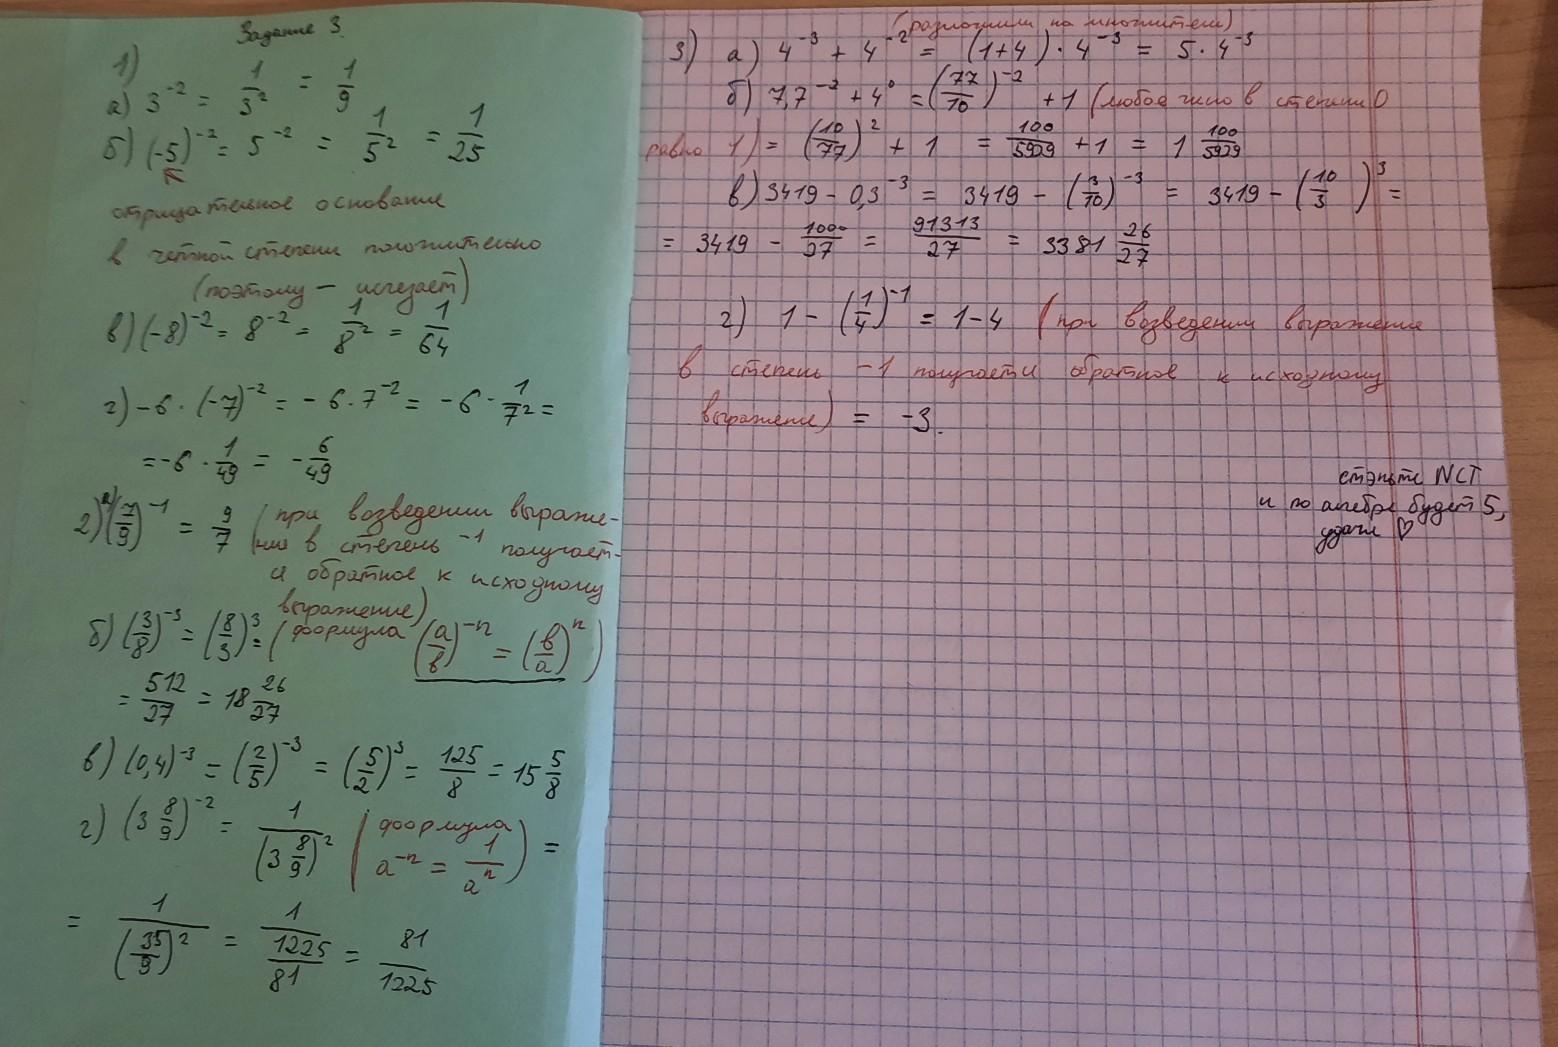 Задание 3.
1)
а) 3^-2 = 1/3^2 = 1/9
б) (-5)^-2 = 5^-2 = 1/5^2 = 1/25
отрицательное основание
в четной степени положительно
(поэтому — исчезает)
в) (-8)^-2 = 8^-2 = 1/8^2 = 1/64
г) -6 · (-7)^-2 = -6 · 7^-2 = -6 · 1/7^2 =
= -6 · 1/49 = -6/49
2) а) (7/9)^-1 = 9/7 (при возведении выраже-
ния в степень -1 получает-
ся обратное к исходному
выражение)
б) (3/8)^-3 = (8/3)^3 = (формула (a/b)^-n = (b/a)^n)
= 512/27 = 18 26/27
в) (0,4)^-3 = (2/5)^-3 = (5/2)^3 = 125/8 = 15 5/8
г) (3 8/9)^-2 = 1/(3 8/9)^2 (формула a^-n = 1/a^n) =
= 1/(35/9)^2 = 1/(1225/81) = 81/1225
(разложим на множители)
3) а) 4^-3 + 4^-2 = (1+4) · 4^-3 = 5 · 4^-3
б) 7,7^-2 + 4^0 = (77/10)^-2 + 1 (любое число в степени 0
равно 1) = (10/77)^2 + 1 = 100/5929 + 1 = 1 100/5929
в) 3419 - 0,3^-3 = 3419 - (3/10)^-3 = 3419 - (10/3)^3 =
= 3419 - 1000/27 = 91313/27 = 3381 26/27
г) 1 - (1/4)^-1 = 1-4 (при возведении выражение
в степень -1 получается обратное к исходному
выражение) = -3.
стэньте NCT
и по алгебре будет 5,
удачи ♡